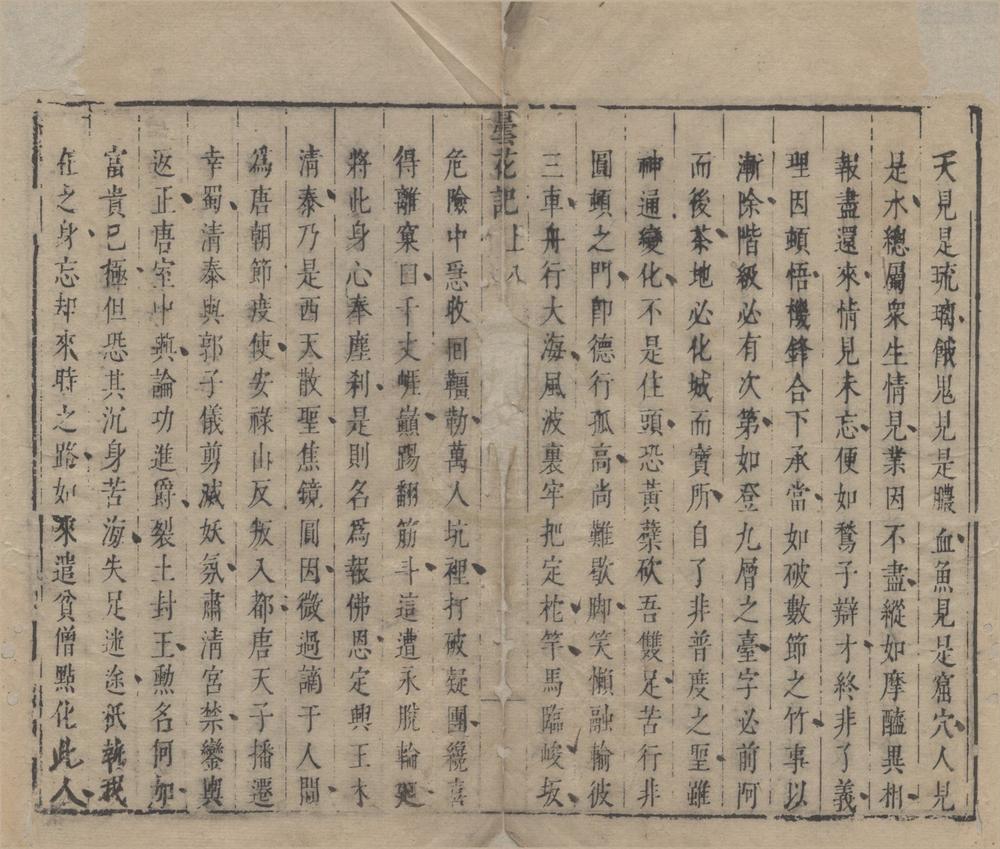 天見是琉璃餓鬼見是膿血魚見是窟穴人見
是水總屬衆生情見業因不盡縱如摩醯異相
報盡還來情見未忘便如鶖子辯才終非了義
理因頓悟機鋒合下承當如破數節之竹事以
漸除階級必有次第如登九層之臺字必前阿
而後茶地必化城而寶所自了非普度之聖雖
神通變化不是住頭恐黃蘗砍吾雙足苦行非
圓頓之門卽德行孤高尚難歇脚笑懶融輸彼
三車舟行大海風波裏牢把定柁竿馬臨峻坂
曇花記 上 八
危險中急收回韁勒萬人坑裡打破疑團纔喜
得離窠臼千丈崕巔踢翻筋斗這遭永脫輪廻
將此身心奉塵刹是則名爲報佛恩定興王木
清泰乃是西天散聖焦鏡圓因微過謫于人間
爲唐朝節度使安祿山反叛入都唐天子播遷
幸蜀清泰與郭子儀剪滅妖氛肅清宮禁鑾輿
返正唐室中興論功進爵裂土封王勲名何如
富貴已極但恐其沉身苦海失足迷途祇執我
在之身忘却來時之路如來遣貧僧點化此人